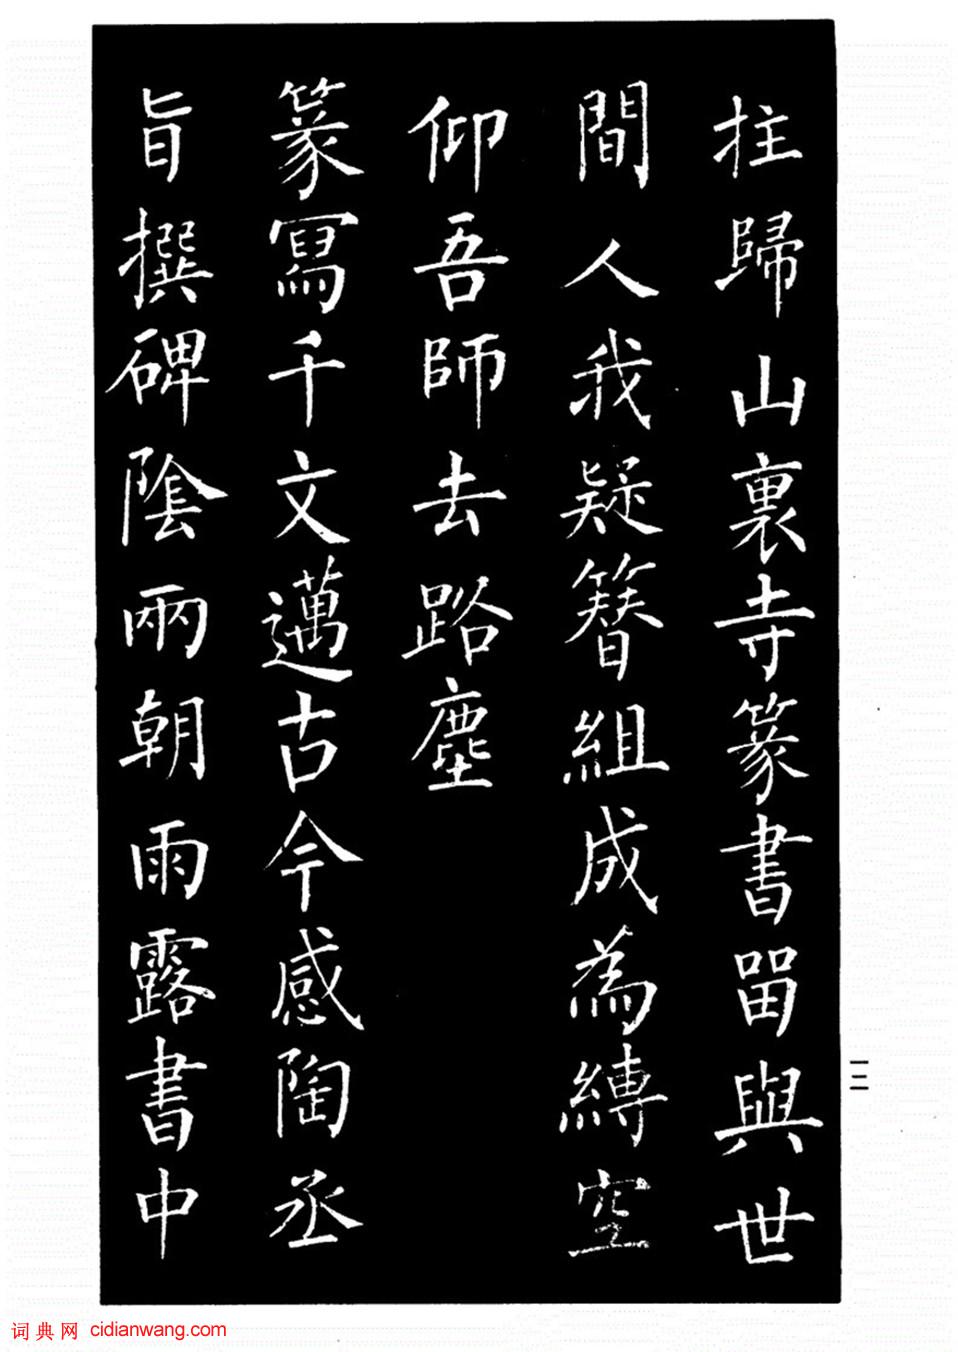 拄歸山裏寺篆書畱與世
間人我疑簪組成為縛空
仰吾師去路塵
篆寫千文邁古今感陶丞
旨撰碑陰兩朝雨露書中
一二
词典网 cidianwang.com